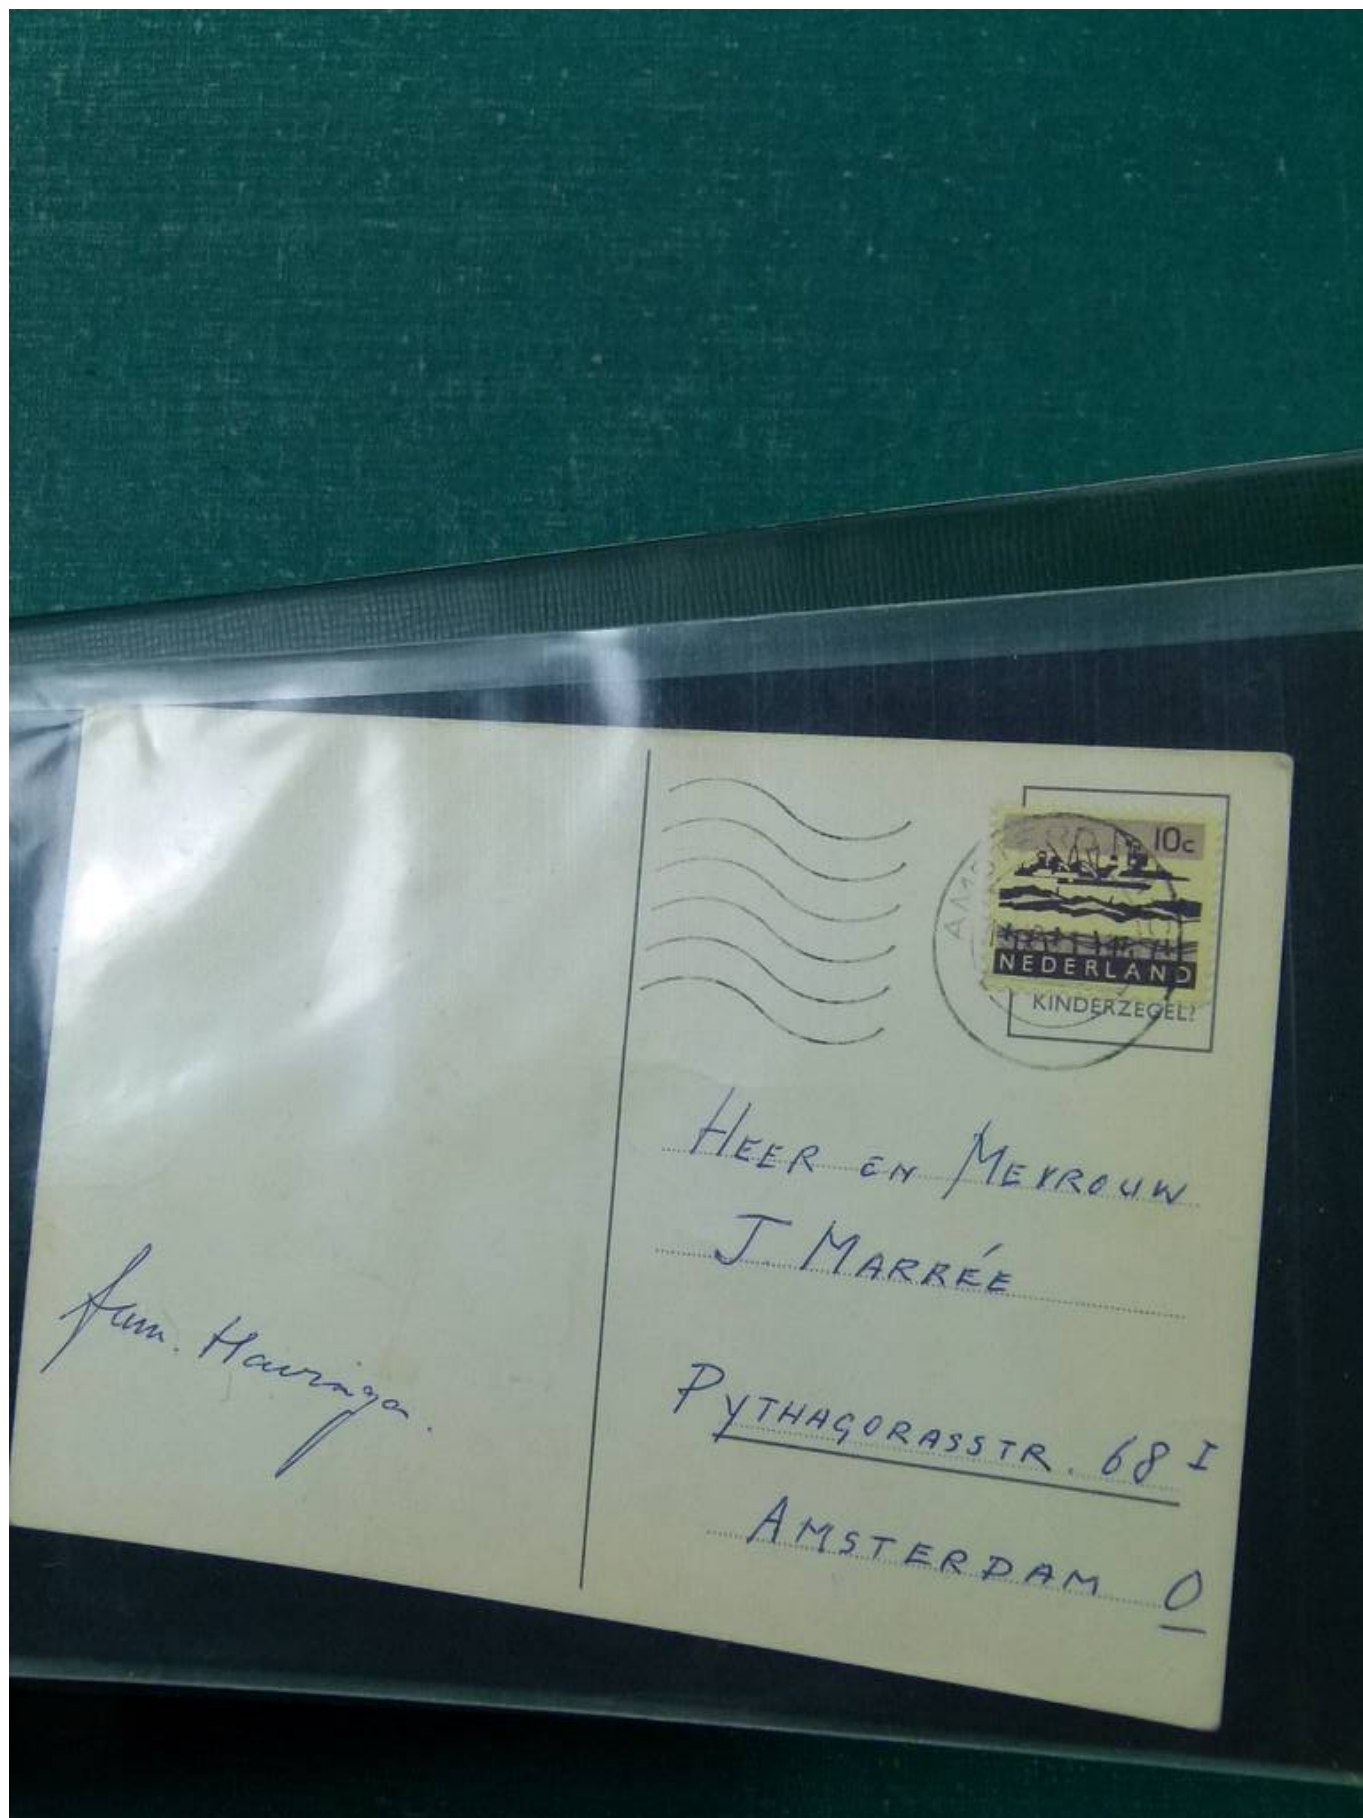 AMSTERDAM
10c
NEDERLAND
KINDERZEGEL?
HEER EN MEVROUW
J MARRÉE
PYTHAGORASSTR. 68 I
AMSTERDAM O
fam. Havinga.